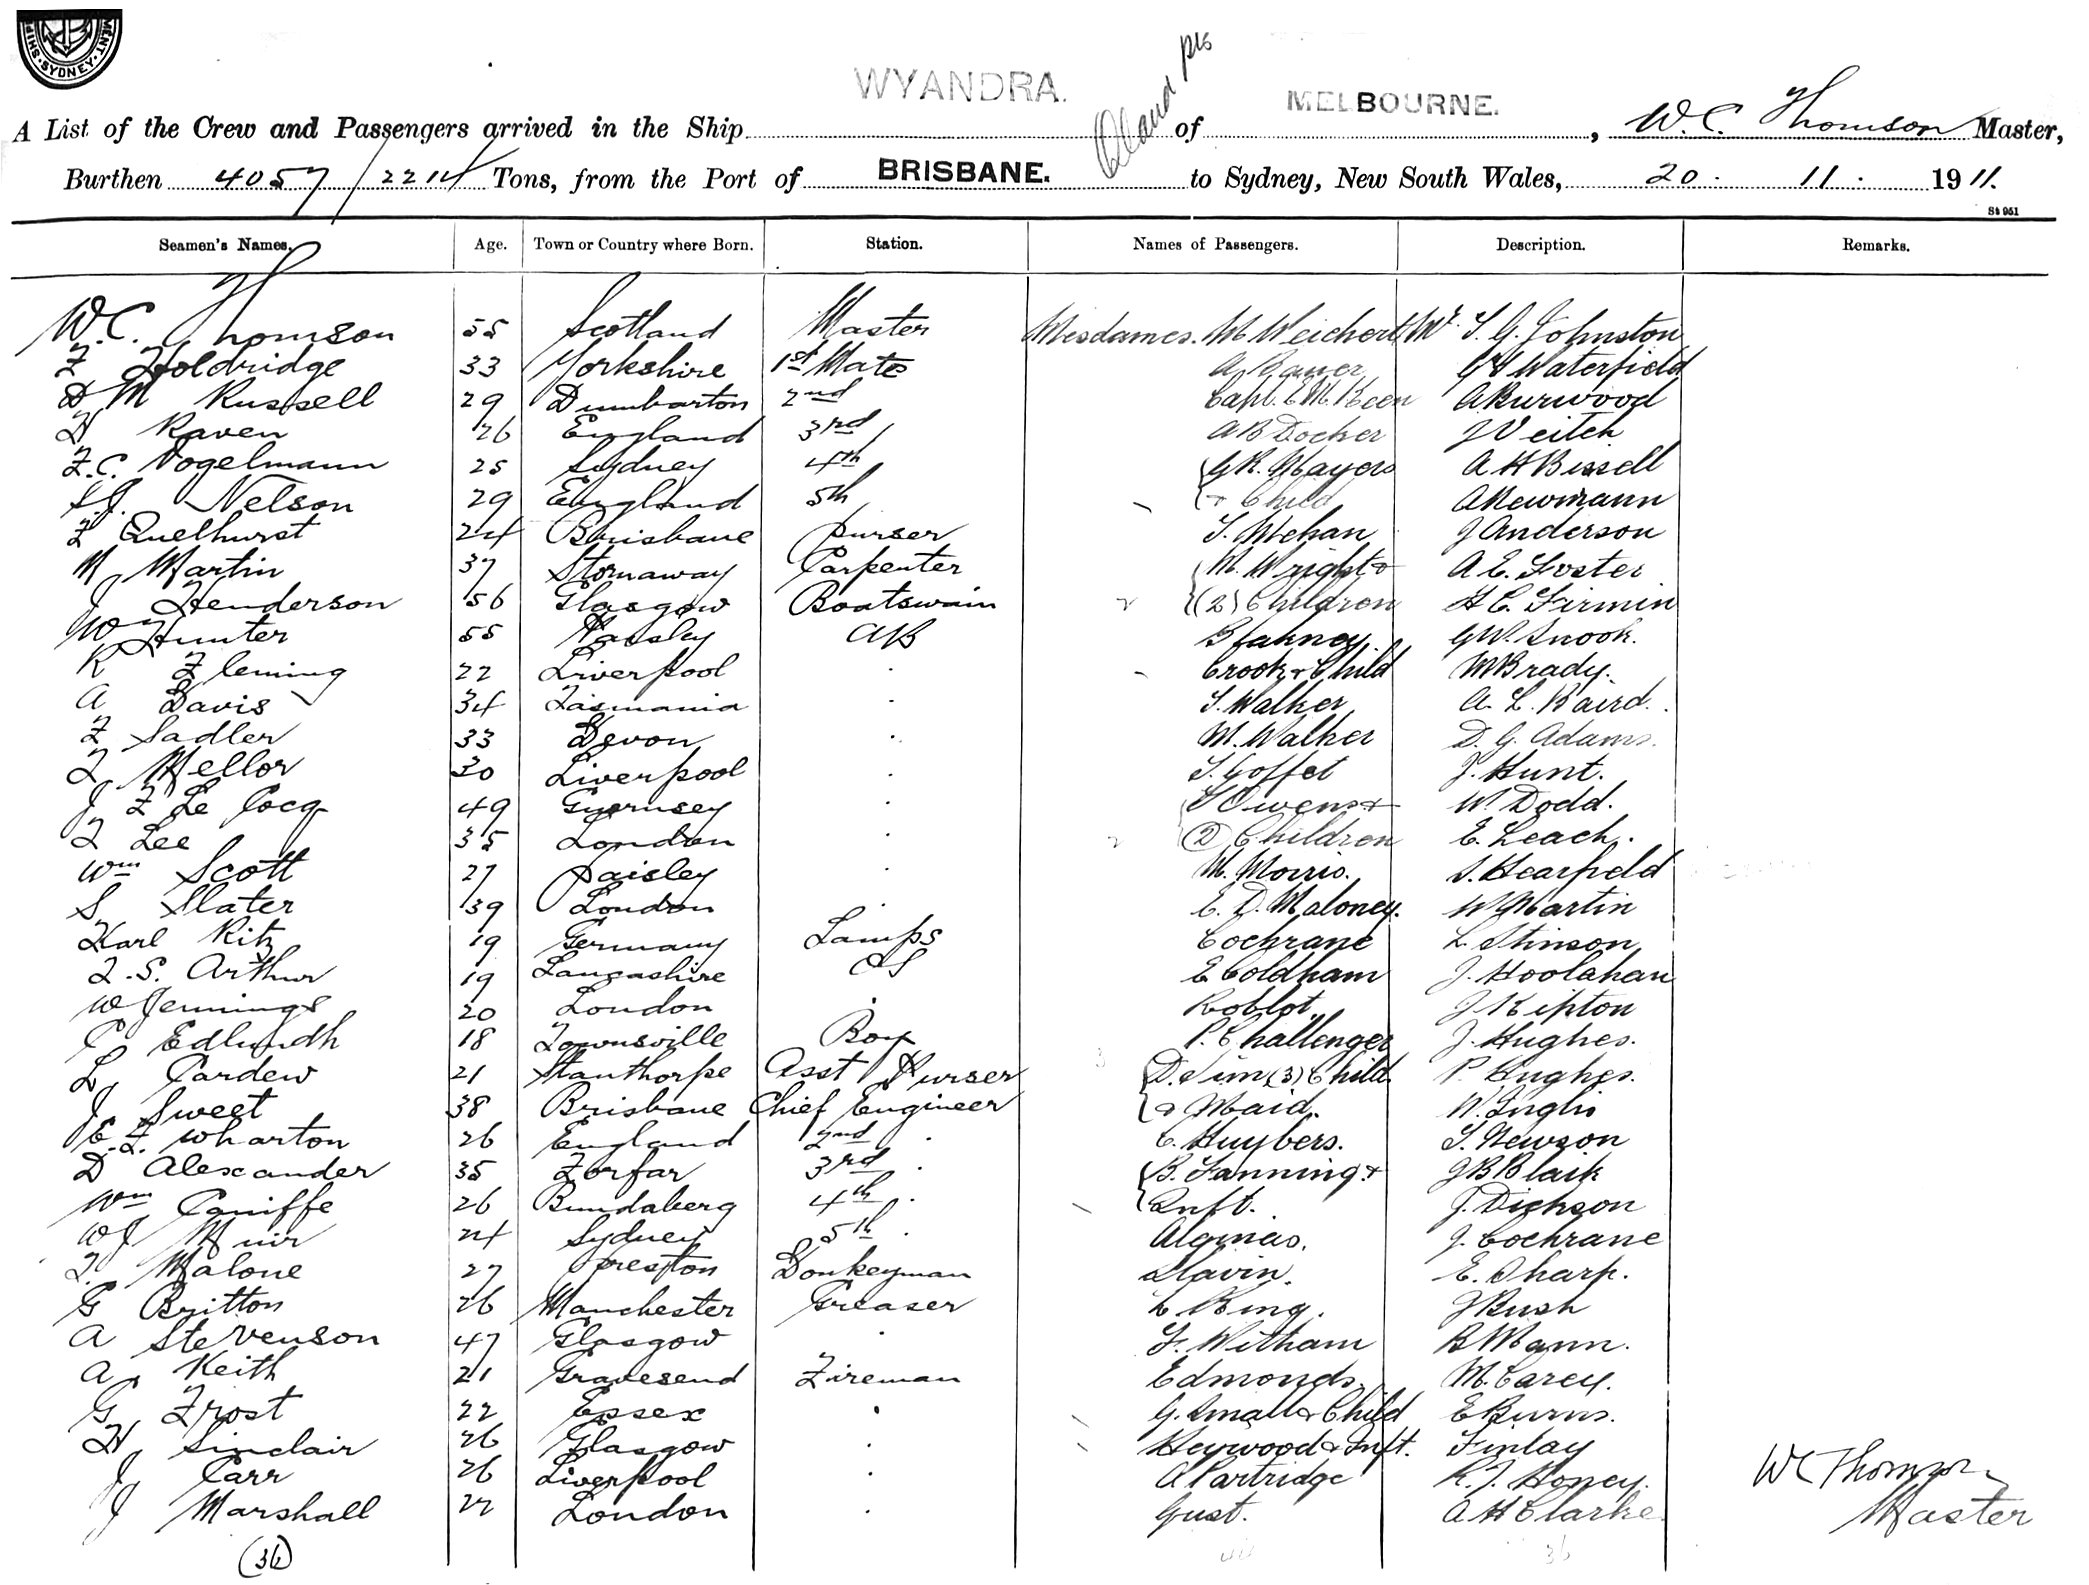 SYDNEY
WYANDRA.
MELBOURNE.
A List of the Crew and Passengers arrived in the Ship of , W.C. Thomson Master,
Burthen 4057/2214 Tons, from the Port of BRISBANE. to Sydney, New South Wales, 20. 11. 1911.
St 951
Seamen's Names. Age. Town or Country where Born. Station. Names of Passengers. Description. Remarks.
W.C. Thomson 55 Scotland Master Mesdames. M Weichert Mr. S. G. Johnston
F Holdridge 33 Yorkshire 1st Mate A Bauer Waterfield
D M Russell 29 Dumbarton 2nd Capt. E.M. Keen A Burwood
H Raven 26 England 3rd A B Docker J Veitch
F.C. Vogelmann 25 Sydney 4th G R. Mayers A H Bissell
S.J. Nelson 29 England 5th & Child A Newmann
F Quelhurst 24 Brisbane purser S. Mehan J Anderson
M Martin 37 Stornaway Carpenter M. Wright & A. E. Foster
J Henderson 56 Glasgow Boatswain (2) Children H C. Firmin
Wm Hunter 55 Paisley AB Blakney G W. Snook.
R Fleming 22 Liverpool Crook & Child M Brady.
A Davis 34 Tasmania S. Walker A. L. Baird.
F Sadler 33 Devon M. Walker D. G. Adams.
T Mellor 30 Liverpool S. Goffet J. Hunt.
J F Le Cocq 49 Guernsey S Owens & W. Dodd.
T Lee 35 London (2) Children E. Leach.
Wm Scott 27 Paisley M. Morris. S. Hearfield
S Slater 39 London E. D. Maloney. W Martin
Karl Ritz 19 Germany Lamps Cochrane L. Stinson
T.S. Arthur 19 Lancashire OS E Coldham J. Hoolahan
W Jennings 20 London Roblot J Kipton
C Edlundh 18 Townsville Boy P. Challenger J. Hughes.
L Cardew 21 Stanthorpe Asst Purser D. Sim (3) Child P. Hughes.
J Sweet 38 Brisbane Chief Engineer & Maid. W. Inglis
E.F. Wharton 26 England 2nd C. Huybers. S. Newson
D Alexander 35 Forfar 3rd B. Fanning & J B Blaik
Wm Caniffe 26 Bundaberg 4th Inft. J. Dickson
W J Muir 24 Sydney 5th Alginas. J. Cochrane
T. Malone 27 Preston Donkeyman Slavin. E. Sharp.
G Britton 26 Manchester Greaser L King. J Bush
A Stevenson 47 Glasgow F. Witham B Mann.
A Keith 21 Gravesend Fireman Edmonds. M. Carey.
G Frost 22 Essex G. Small & Child E Burns.
H Sinclair 26 Glasgow Heywood & Inft. Finlay
J Carr 26 Liverpool A Partridge R. J. Honey.
J Marshall 22 London Gust. A H Clarke
WC Thomson
Master
(36) 36